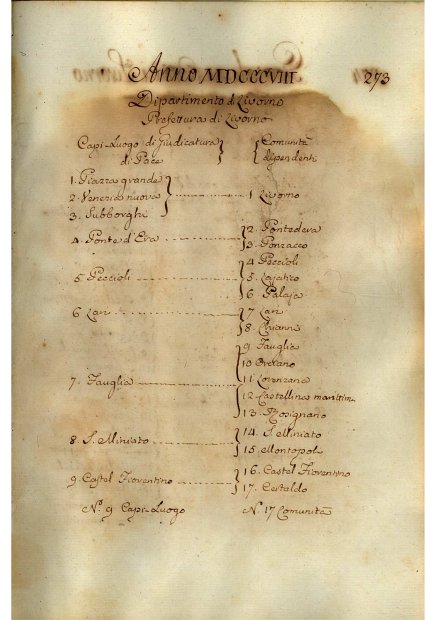 Anno MDCCCVIII 273
Dipartimento di Livorno
Prefettura di Livorno
Capi-Luogo di Giudicatura di Pace
Comunità dipendenti
1. Piazza grande
2. Venezia nuova
3. Subborghi
1 Livorno
4. Ponte d'Era
2. Pontedera
3. Ponzacco
5. Peccioli
4 Peccioli
5. Lajatico
6 Palaja
6 Lari
7 Lari
8. Chianni
7. Fauglia
9 Fauglia
10 Orciano
11 Lorenzana
12 Castellina marittim.
13. Rosignano
8 S. Miniato
14. S. Miniato
15. Montopoli
9. Castel Fiorentino
16. Castel Fiorentino
17. Certaldo
N.º 9 Capi-Luogo
N. 17 Comunità